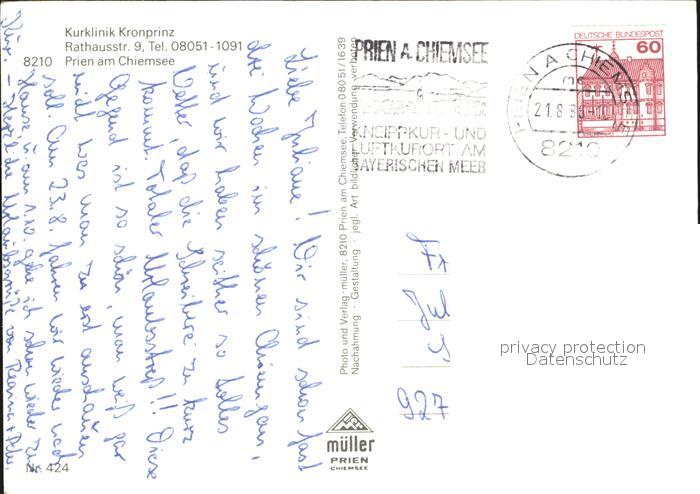 Kurklinik Kronprinz
Rathausstr. 9, Tel. 08051-1091
8210 Prien am Chiemsee
Liebe Juliane! Wir sind schon fast
drei Wochen im schönen Chiemgau,
und wir haben seither so tolles
Wetter, daß die Schreiberei zu kurz
kommt. Totaler Urlaubsstreß!! Diese
Gegend ist so schön, man weiß gar
nicht was man zu erst anschauen
soll. Am 23.8. fahren wir wieder nach
Hause u. am 1.10. gehe ich schon wieder zur
Kur. – Herzliche Urlaubsgrüße von
Nr. 424
Photo und Verlag · müller, 8210 Prien am Chiemsee, Telefon 08051/1639
Nachahmung · Gestaltung · jegl. Art bildlicher Verwendung verboten
müller
PRIEN
CHIEMSEE
PRIEN A. CHIEMSEE
KNEIPPKUR- UND
LUFTKURORT AM
BAYERISCHEN MEER
DEUTSCHE BUNDESPOST
60
PRIEN A CHIEMSEE
21.8.
8210
Fr
Jul
927
privacy protection
Datenschutz